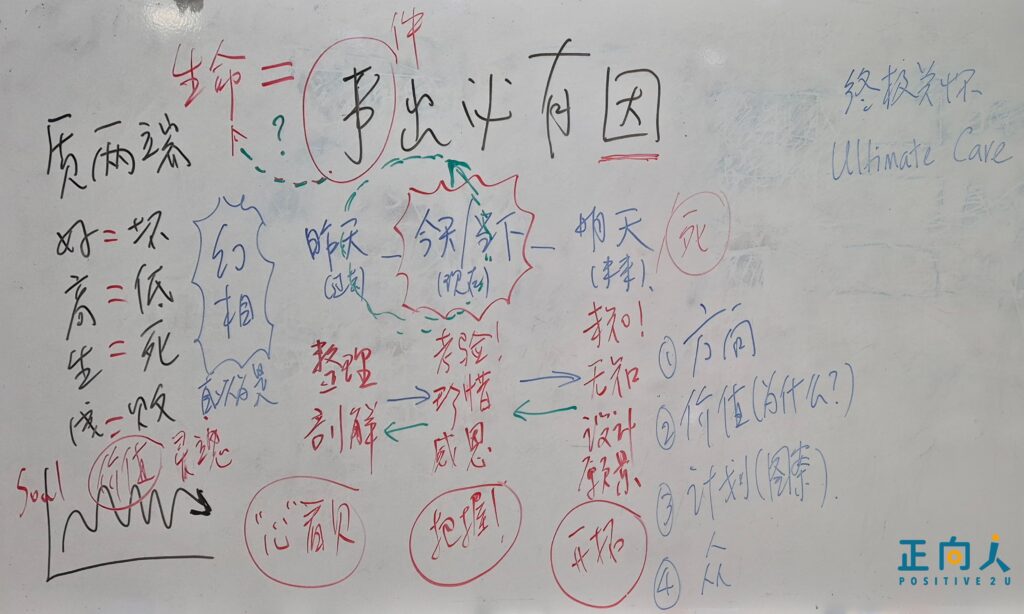 生命 = 事件
事出必有因
?
质两端
终极关怀
Ultimate Care
好 = 坏
高 = 低
生 = 死
成 = 败
幻相
昨天
(过去)
今天/当下
(现在)
明天
(未来)
死
整理
剖解
考验!
珍惜
感恩
无知
设计
愿景
① 方向
② 价值(为什么?)
③ 计划(图案)
④ 众
价值
灵魂
Soul
"心"看见
把握!
开拓
正向人
POSITIVE2U